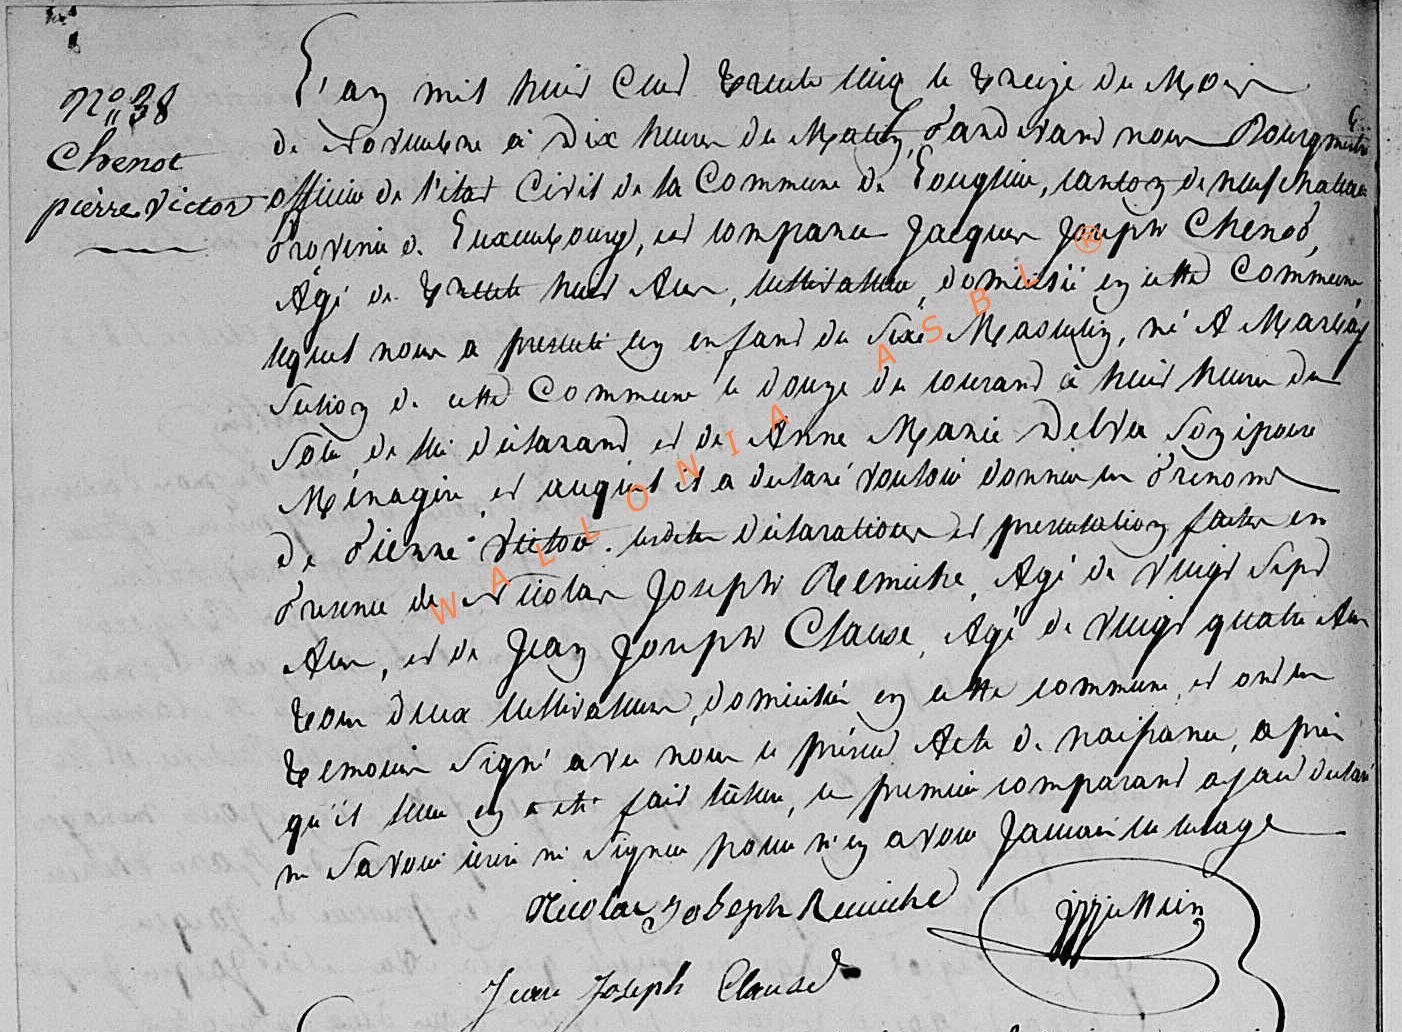 N° 38
Chenot
pierre Victor
L'an mil huit Cent trente cinq le treize du Mois
de Novembre à Dix heures du Matin, Pardevant nous Bourgmestre
officier de l'état Civil de la Commune de Longlier, canton de neufchateau
Province de Luxembourg, est comparu Jacques Joseph Chenot,
Agé de trente huit Ans, cultivateur, domicilié en cette Commune
lequel nous a presenté un enfant du Sexe Masculin, né A Marbay
Section de cette Commune le douze du courant à huit heures du
Soir, de lui déclarant et de Anne Marie Delvu Son épouse
Ménagère, et auquel il a declaré vouloir donner les Prenoms
de Pierre Victor. lesdites déclarations et presentation faites en
Presence de Nicolas Joseph Remiche, Agé de Vingt Sept
Ans, et de Jean Joseph Clause, Agé de Vingt quatre Ans
tous deux cultivateurs, domiciliés en cette commune, et ont les
temoins Signé avec nous le présent Acte de naissance, après
qu'il leur en a été fait lecture, le premier comparant ayant declaré
ne Savoir écrire ni Signer pour n'en avoir Jamais eu l'usage
Nicolas Joseph Remiche
Jean Joseph Clause
WALLONIA ASBL ®